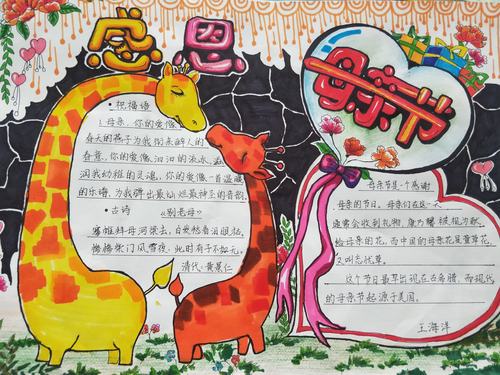 感恩
母亲节
•祝福语
1.母亲,你的爱像
春天的燕子为我衔来醉人的
春意,你的爱像汩汩的流水,滋
润我幼稚的灵魂,你的爱像一首温暖
的乐谱,为我弹出最灿烂最神圣的音韵。
•古诗 《别老母》
搴帷拜母河梁去,白发愁看泪眼枯,
惨惨柴门风雪夜,此时有子不如无。
清代·黄景仁
母亲节是一个感谢
母亲的节日。母亲们在这一天
通常会收到礼物,康乃馨被视为献
给母亲的花,而中国的母亲花是萱草花,
又叫忘忧草。
这个节日最早出现在古希腊,而现代
的母亲节起源于美国。
王海洋